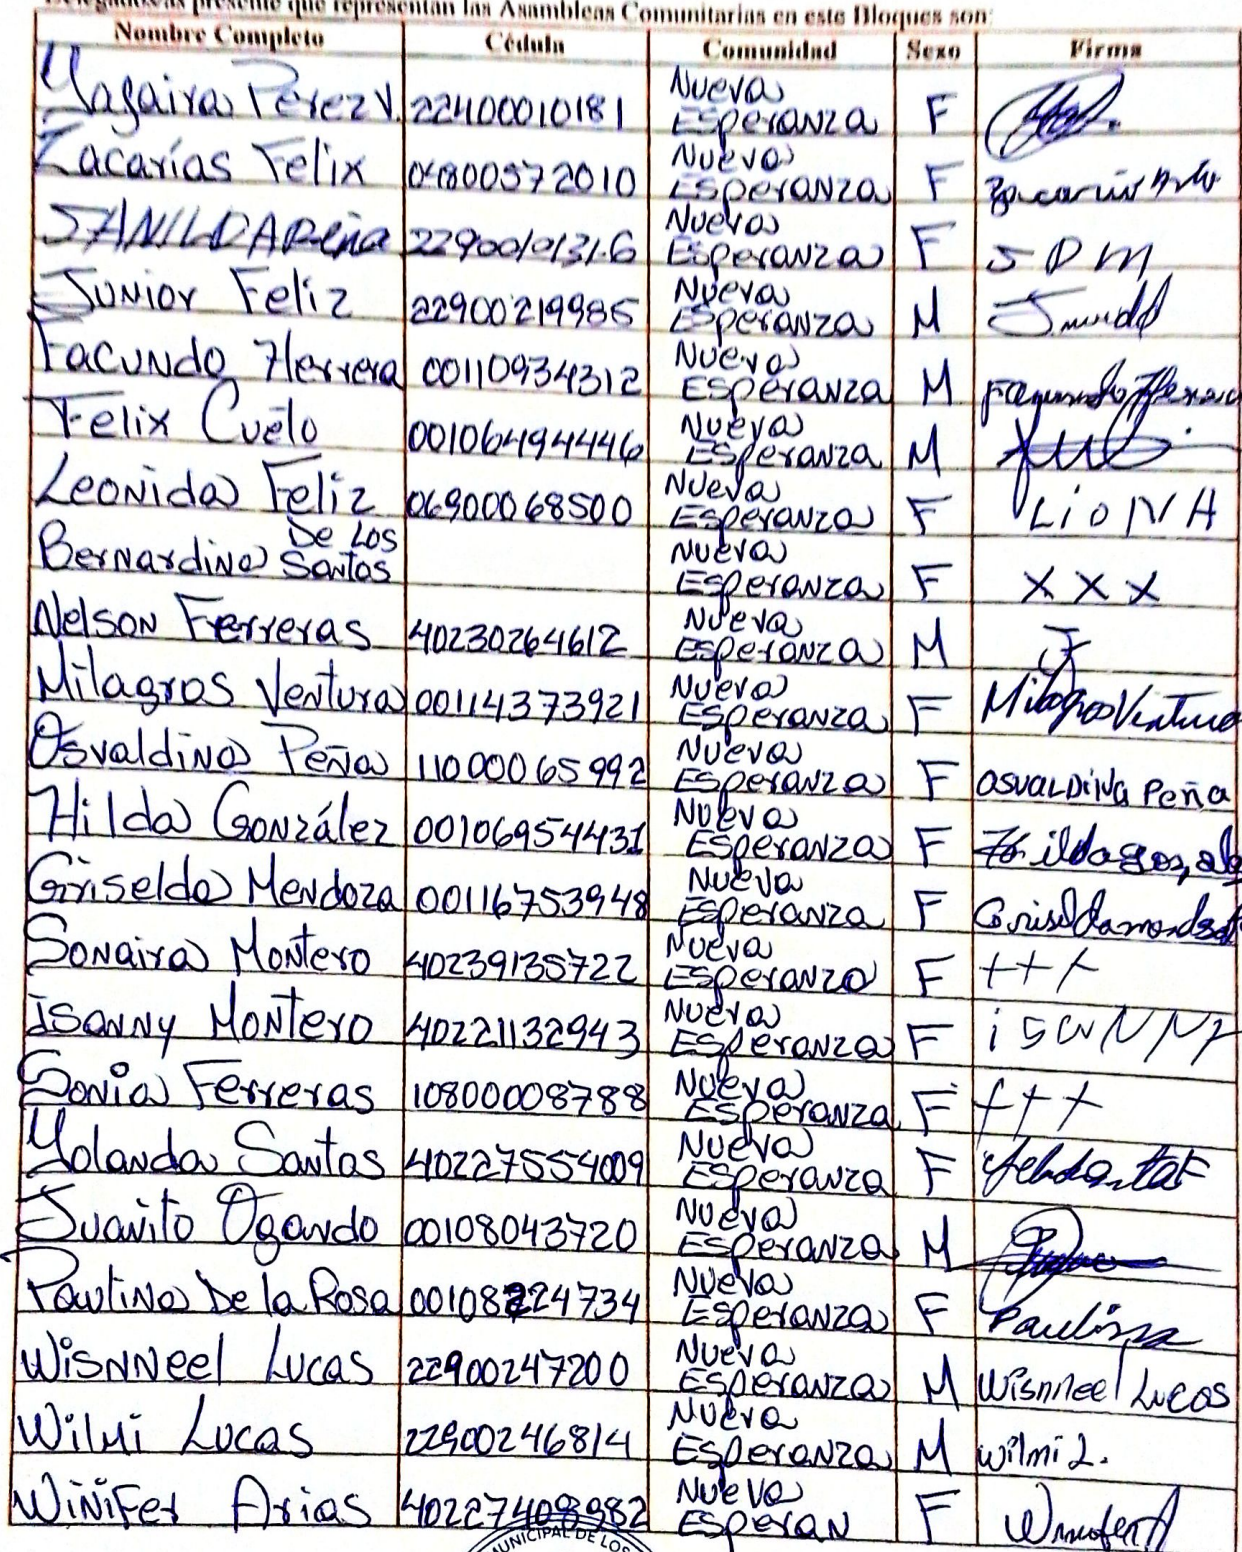 Delegados/as presente que representan las Asambleas Comunitarias en este Bloques son:
Nombre Completo Cédula Comunidad Sexo Firma
Yagaira Perez V. 22400010181 Nueva Esperanza F
Zacarías Felix 04800572010 Nueva Esperanza F
SANILDA Peña 22900101316 Nueva Esperanza F S D M
Junior Feliz 22900219985 Nueva Esperanza M
Facundo Herrera 00110934312 Nueva Esperanza M
Felix Cuelo 00106494446 Nueva Esperanza M
Leonida Feliz 06900068500 Nueva Esperanza F LiONA
Bernardina De Los Santos Nueva Esperanza F X X X
Nelson Ferreras 40230264612 Nueva Esperanza M
Milagros Ventura 00114373921 Nueva Esperanza F Milagros Ventura
Osvaldina Peña 11000065992 Nueva Esperanza F OSVALDINA Peña
Hilda González 00106954431 Nueva Esperanza F
Griselda Mendoza 00116753948 Nueva Esperanza F
Sonaira Montero 40239135722 Nueva Esperanza F +++
isanny Montero 40221132943 Nueva Esperanza F
Sonia Ferreras 10800008788 Nueva Esperanza F +++
Yolanda Santos 40227554009 Nueva Esperanza F
Juanito Ogando 00108043720 Nueva Esperanza M
Paulina De la Rosa 00108224734 Nueva Esperanza F Paulina
Wisnneel Lucas 22900247200 Nueva Esperanza M Wisnneel Lucas
Wilmi Lucas 22900246814 Nueva Esperanza M Wilmi L.
Winifer Arias 40227408982 Nueva Esperan F
MUNICIPAL DE LOS